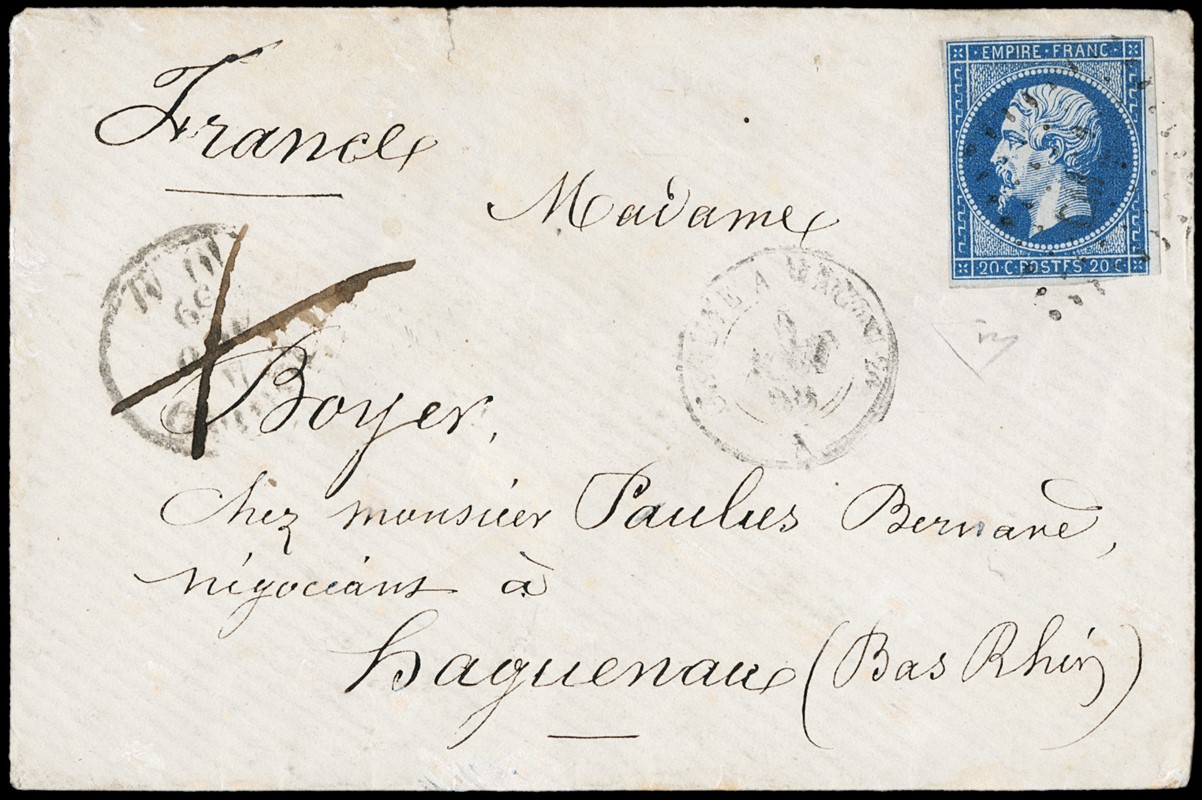 France
EMPIRE · FRANC ·
20 C · POSTES 20 C
Madame
Boyer,
chez monsieur Paulus Bernard,
négociant à
haguenau (Bas Rhin)
A